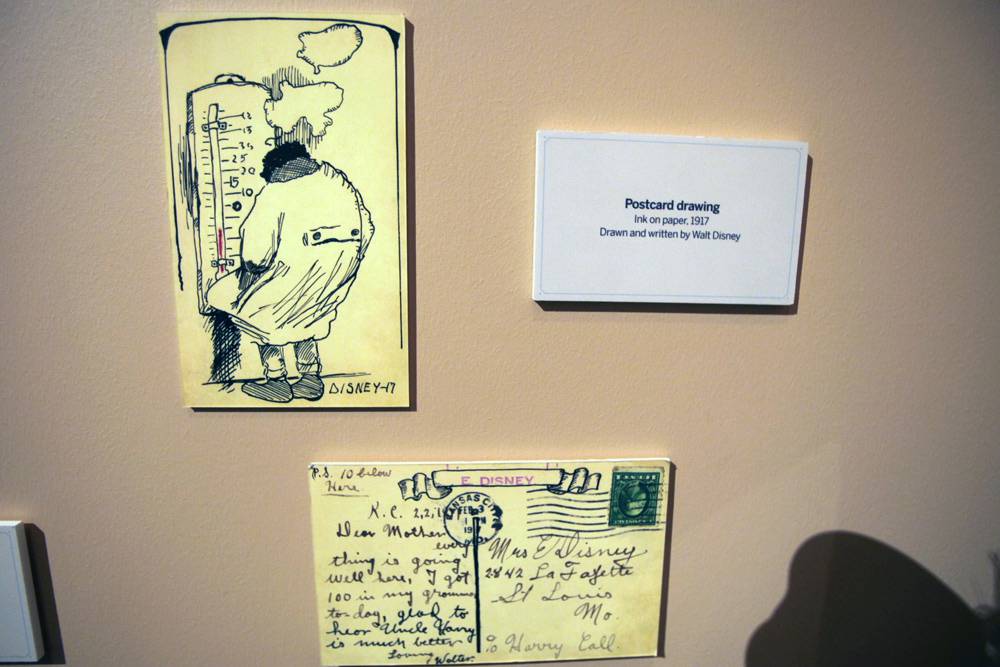 12
15
35
25
20
15
10
0
DISNEY-17
Postcard drawing
Ink on paper, 1917
Drawn and written by Walt Disney
P.S. 10 below
Here.
E. DISNEY
KANSAS CITY
FEB 3
K.C. 2,2,1
Dear Mother
every
thing is going
well here, I got
100 in my
to-day, glad to
hear Uncle Harry
is much better
Loving
Walter.
Mrs E Disney
2842 La Fayette
St Louis
Mo.
c/o Harry Call.